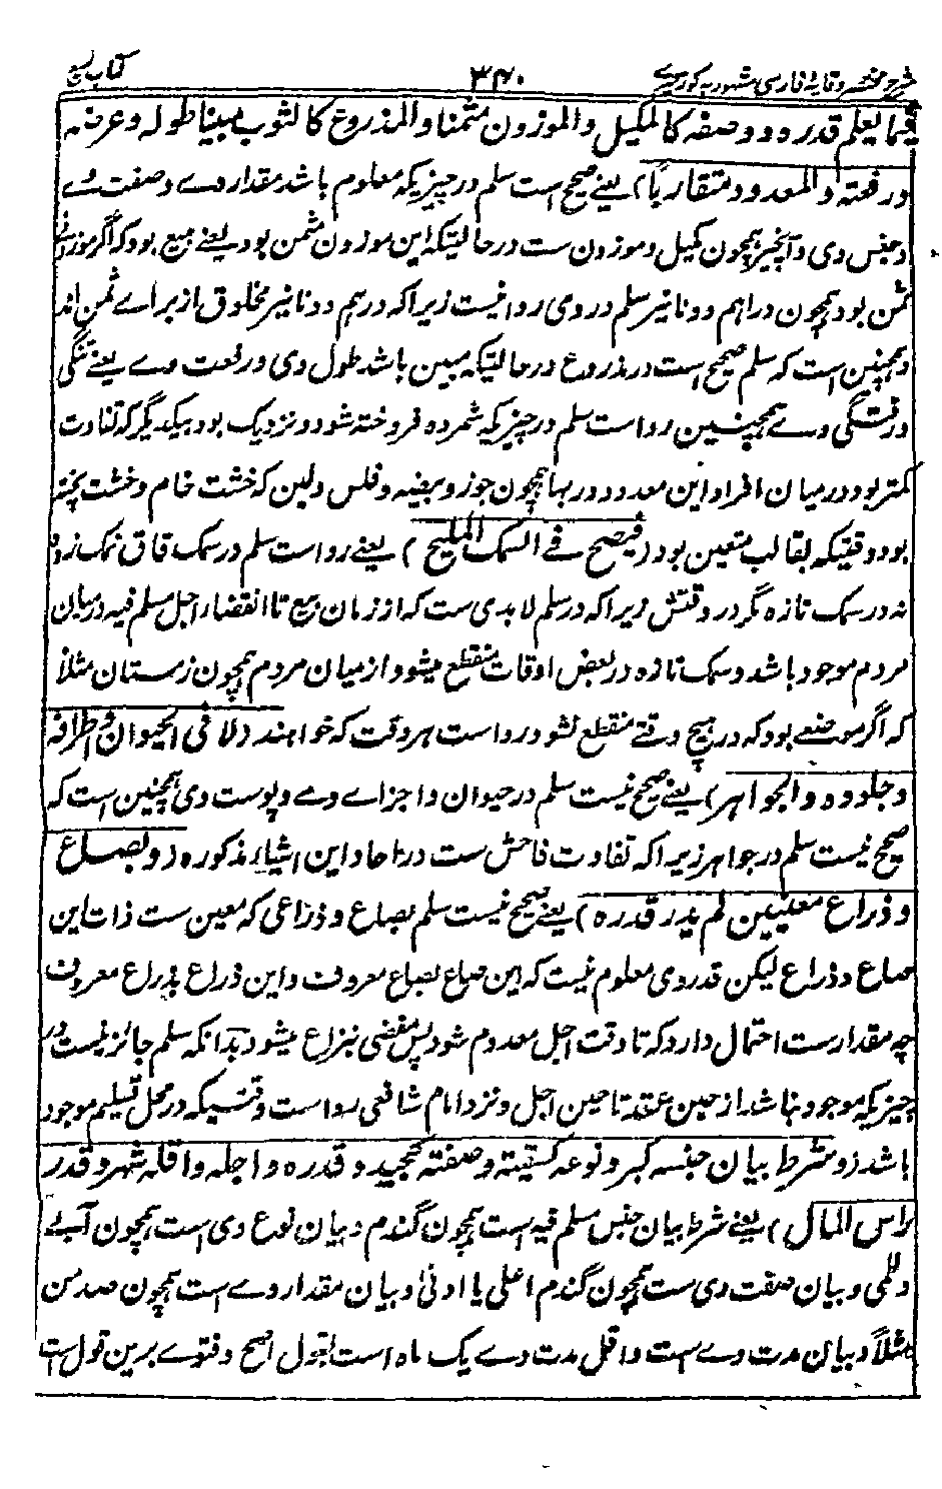 شرح مختصر وقایه فارسی مشهور به کور میری
۳۴۰
کتاب البیع
فیما یعلم قدره و وصفه کالمکیل والموزون مثمنا والمذروع کالثوب مبینا طوله وعرضه
ورقعته والمعدود متقاربا) یعنے صحیح است سلم در چیزیکه معلوم باشد مقدار وے وصفت وے
وجنس وی وآنچیز همچون کمیل وموزون ست درحالیکه این موزون مثمن بود یعنے مبیع بود که اگر موزون
ثمن بود همچون دراهم ودنانیر سلم در وی روا نیست زیراکه درهم ودنانیر مخلوق از براے ثمن اند
وهمچنین است که سلم صحیح است در مذروع درحالیکه مبین باشد طول وی ورقعت وے یعنے تنگی
ورفتگی وے همچنین رواست سلم در چیزیکه شمرده فروخته شود ونزدیک بود بیکدیگر که تفاوت
کمتر بود درمیان افراد این معدود در بها همچون جوز وبیضه وفلس ولبن که خشت خام وخشت پخته
بود وقتیکه بقالب متعین بود (فیصح فے السمک الملیح) یعنے رواست سلم در سمک قاق نمک زده
نه در سمک تازه مگر در وقتش زیراکه در سلم لابدی ست که از زمان بیع تا انقضاء اجل مسلم فیه درمیان
مردم موجود باشد وسمک تازه در بعض اوقات منقطع میشود از میان مردم همچون زمستان مثلاً
که اگر موضعے بود که در هیچ وقتے منقطع نشود رواست هر وقت که خواهند (لا فی الحیوان واطرافه
وجلوده والجواهر) یعنے صحیح نیست سلم در حیوان واجزاے وے وپوست وی همچنین است که
صحیح نیست سلم در جواهر زیراکه تفاوت فاحش ست در آحاد این اشیاء مذکوره (وبصاع
وذراع معینین لم یدر قدره) یعنے صحیح نیست سلم بصاع وذراعی که معین ست ذات این
صاع وذراع لیکن قدر وی معلوم نیست که این صاع بصاع معروف واین ذراع بذراع معروف
چه مقدار ست احتمال دارد که تا وقت اجل معدوم شود پس مفضی بنزاع میشود بدانکه سلم جائز نیست در
چیزیکه موجود نباشد از حین عقد تا حین اجل ونزد امام شافعی رواست وقتیکه در محل تسلیم موجود
باشد (وشرط بیان جنسه کبر ونوعه کسقیة وصفته کجید وقدره واجله واقله شهر وقدر
راس المال) یعنے شرط بیان جنس مسلم فیه است همچون گندم وبیان نوع وی است همچون آبے
وللمی وبیان صفت وی ست همچون گندم اعلی یا ادنی وبیان مقدار وے ست همچون صد من
مثلاً وبیان مدت وے ست واقل مدت وے یک ماه است بقول اصح وفتوے برین قول است